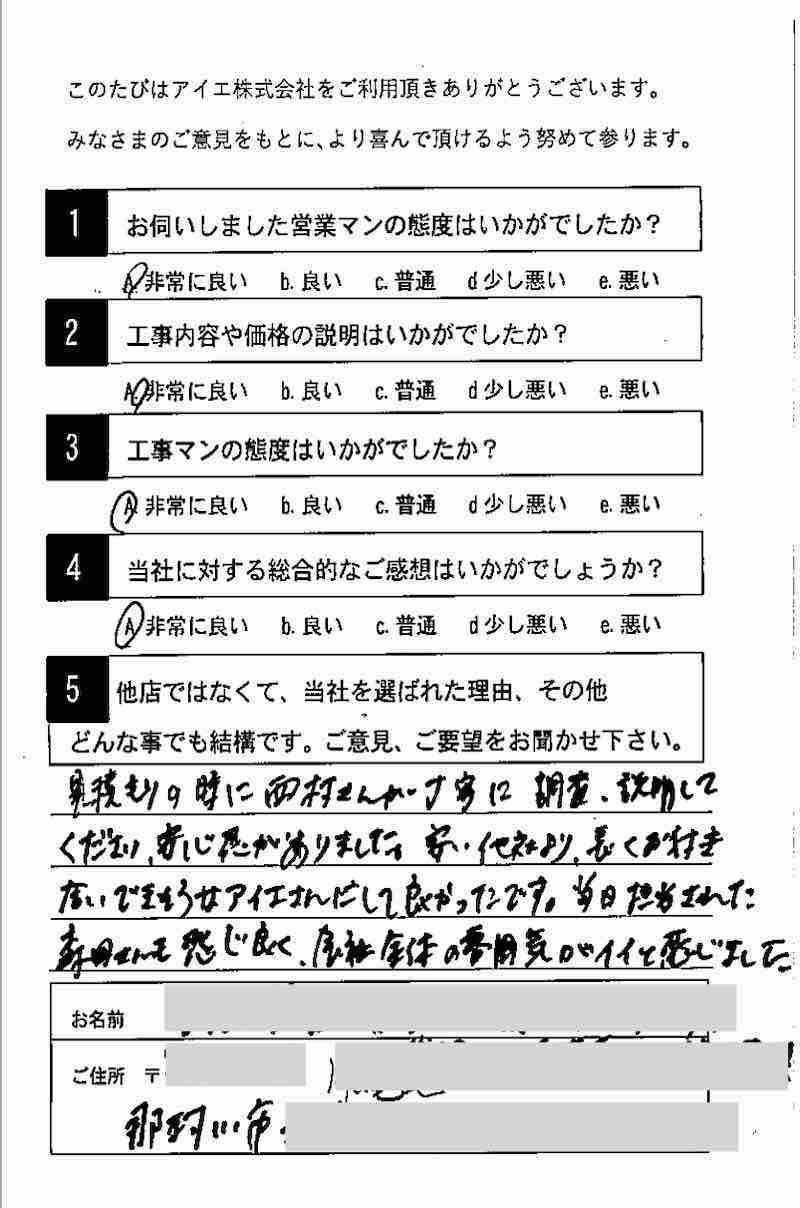 このたびはアイエ株式会社をご利用頂きありがとうございます。
みなさまのご意見をもとに、より喜んで頂けるよう努めて参ります。
1 お伺いしました営業マンの態度はいかがでしたか？
A 非常に良い b. 良い c. 普通 d 少し悪い e. 悪い
2 工事内容や価格の説明はいかがでしたか？
A 非常に良い b. 良い c. 普通 d 少し悪い e. 悪い
3 工事マンの態度はいかがでしたか？
A 非常に良い b. 良い c. 普通 d 少し悪い e. 悪い
4 当社に対する総合的なご感想はいかがでしょうか？
A 非常に良い b. 良い c. 普通 d 少し悪い e. 悪い
5 他店ではなくて、当社を選ばれた理由、その他
どんな事でも結構です。ご意見、ご要望をお聞かせ下さい。
見積もりの時に西村さんが丁寧に調査、説明して
くださり、安心感がありました。安い他社より、長くお付き
合いできそうなアイエさんにして良かったです。当日担当された
森田さんも感じ良く、会社全体の雰囲気がイイと感じました
お名前
ご住所 〒
那珂川市